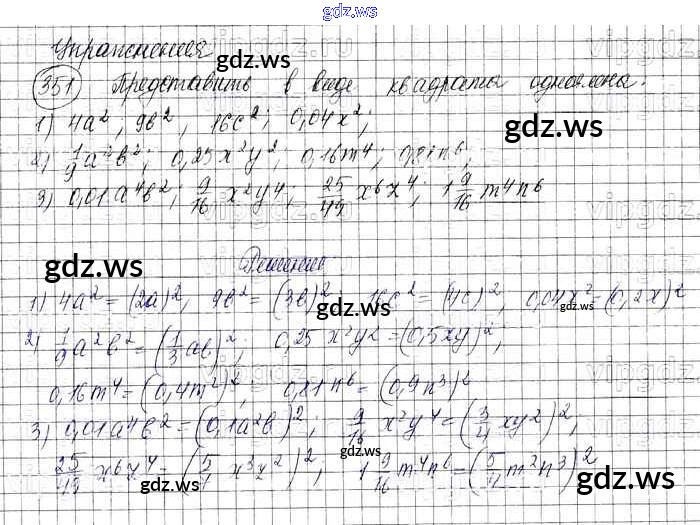 gdz.ws
Упражнения
gdz.ws
351 Представить в виде квадрата одночлена:
1) 4a², 9в², 16c²; 0,04x²;
gdz.ws
2) 1/9 a²в²; 0,25x²y²; 0,16m⁴; 0,81n⁶;
3) 0,01a⁴в²; 9/16 x²y⁴; 25/49 x⁶z⁴; 1 9/16 m⁴n⁶
Решение
gdz.ws gdz.ws
1) 4a² = (2a)², 9в² = (3в)², 16c² = (4c)², 0,04x² = (0,2x)²
gdz.ws gdz.ws
2) 1/9 a²в² = (1/3 aв)²; 0,25x²y² = (0,5xy)²;
0,16m⁴ = (0,4m²)²; 0,81n⁶ = (0,9n³)²
gdz.ws gdz.ws
3) 0,01a⁴в² = (0,1a²в)²; 9/16 x²y⁴ = (3/4 xy²)²;
gdz.ws
25/49 x⁶z⁴ = (5/7 x³z²)²; 1 9/16 m⁴n⁶ = (5/4 m²n³)²
gdz.ws gdz.ws